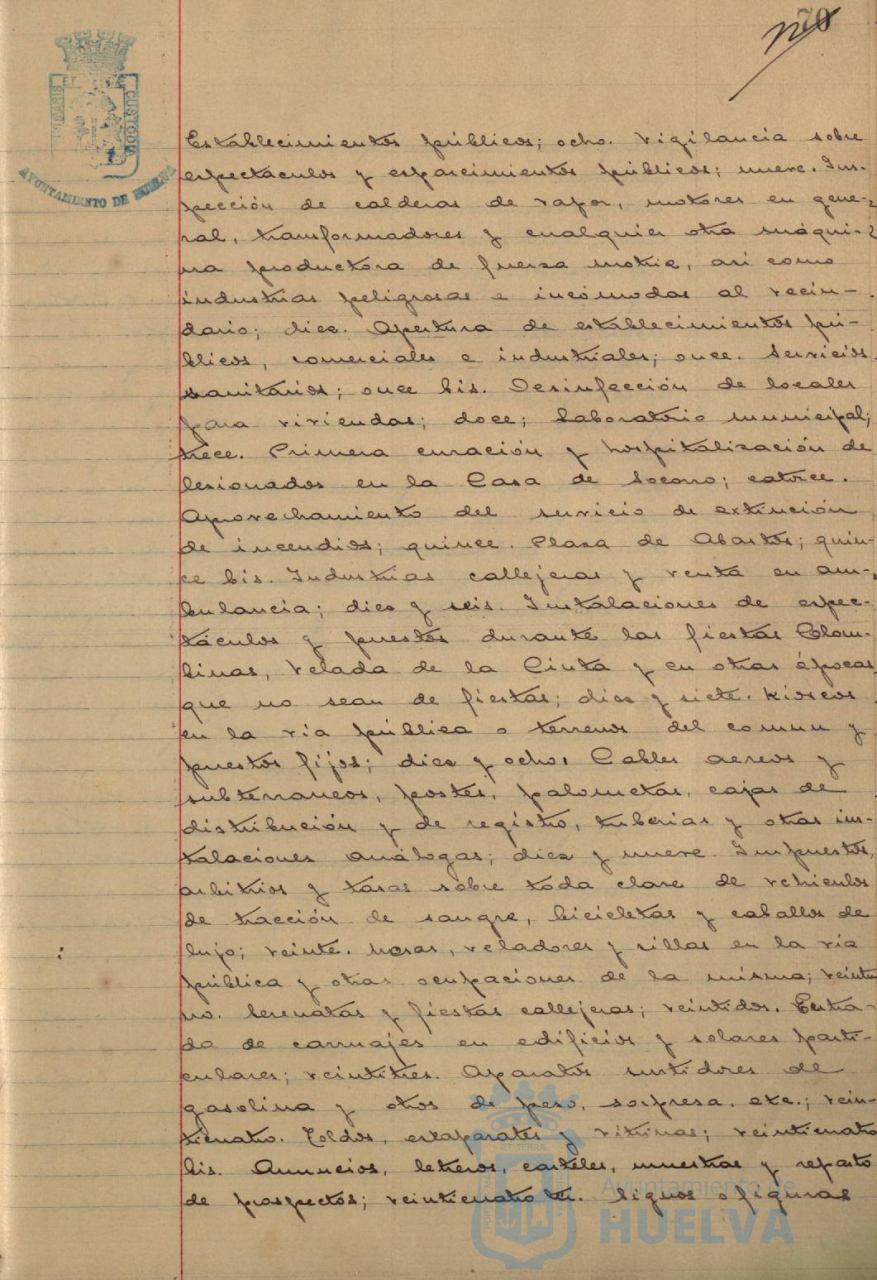 70
PORTUS MARIS ET TERRAE CUSTODIA
AYUNTAMIENTO DE HUELVA
Establecimientos públicos; ocho. Vigilancia sobre
espectáculos y esparcimientos públicos; nueve. Ins-
pección de calderas de vapor, motores en gene-
ral, transformadores y cualquier otra máqui-
na productora de fuerza motriz, así como
industrias peligrosas e incómodas al vecin-
dario; diez. Apertura de establecimientos pú-
blicos, comerciales e industriales; once. Servicios
sanitarios; once bis. Desinfección de locales
para viviendas; doce; Laboratorio municipal;
trece. Primera curación y hospitalización de
lesionados en la Casa de Socorro; catorce.
Aprovechamiento del servicio de extinción
de incendios; quince. Plaza de Abastos; quin-
ce bis. Industrias callejeras y venta en am-
bulancia; diez y seis. Instalaciones de espec-
táculos y puestos durante las fiestas Colom-
binas, Velada de la Cinta y en otras épocas
que no sean de fiestas; diez y siete. Kioscos
en la vía pública o terrenos del comun y
puestos fijos; diez y ocho: Cables aereos y
subterraneos, postes, palometas, cajas de
distribución y de registro, tuberias y otras ins-
talaciones análogas; diez y nueve. Impuestos,
arbitrios y tasas sobre toda clase de vehiculos
de tracción de sangre, bicicletas y caballos de
lujo; veinte. Mesas, veladores y sillas en la vía
pública y otras ocupaciones de la misma; veintiu
no. Serenatas y fiestas callejeras; veintidos. Entra-
da de carruajes en edificios y solares parti-
culares; veintitres. Aparatos surtidores de
gasolina y otros de peso, sorpresa, etc.; vein-
ticuatro. Toldos, escaparates y vitrinas; veinticuatro
bis. Anuncios, letreros, carteles, muestras y reparto
de prospectos; veinticuatro ter. Signos o figuras
Ayuntamiento de
HUELVA